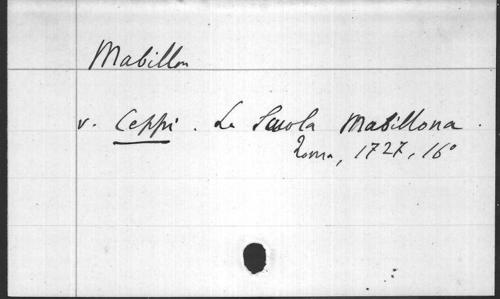 Mabillon
v. Ceppi. La Scuola Mabillona.
Roma, 1727, 16°